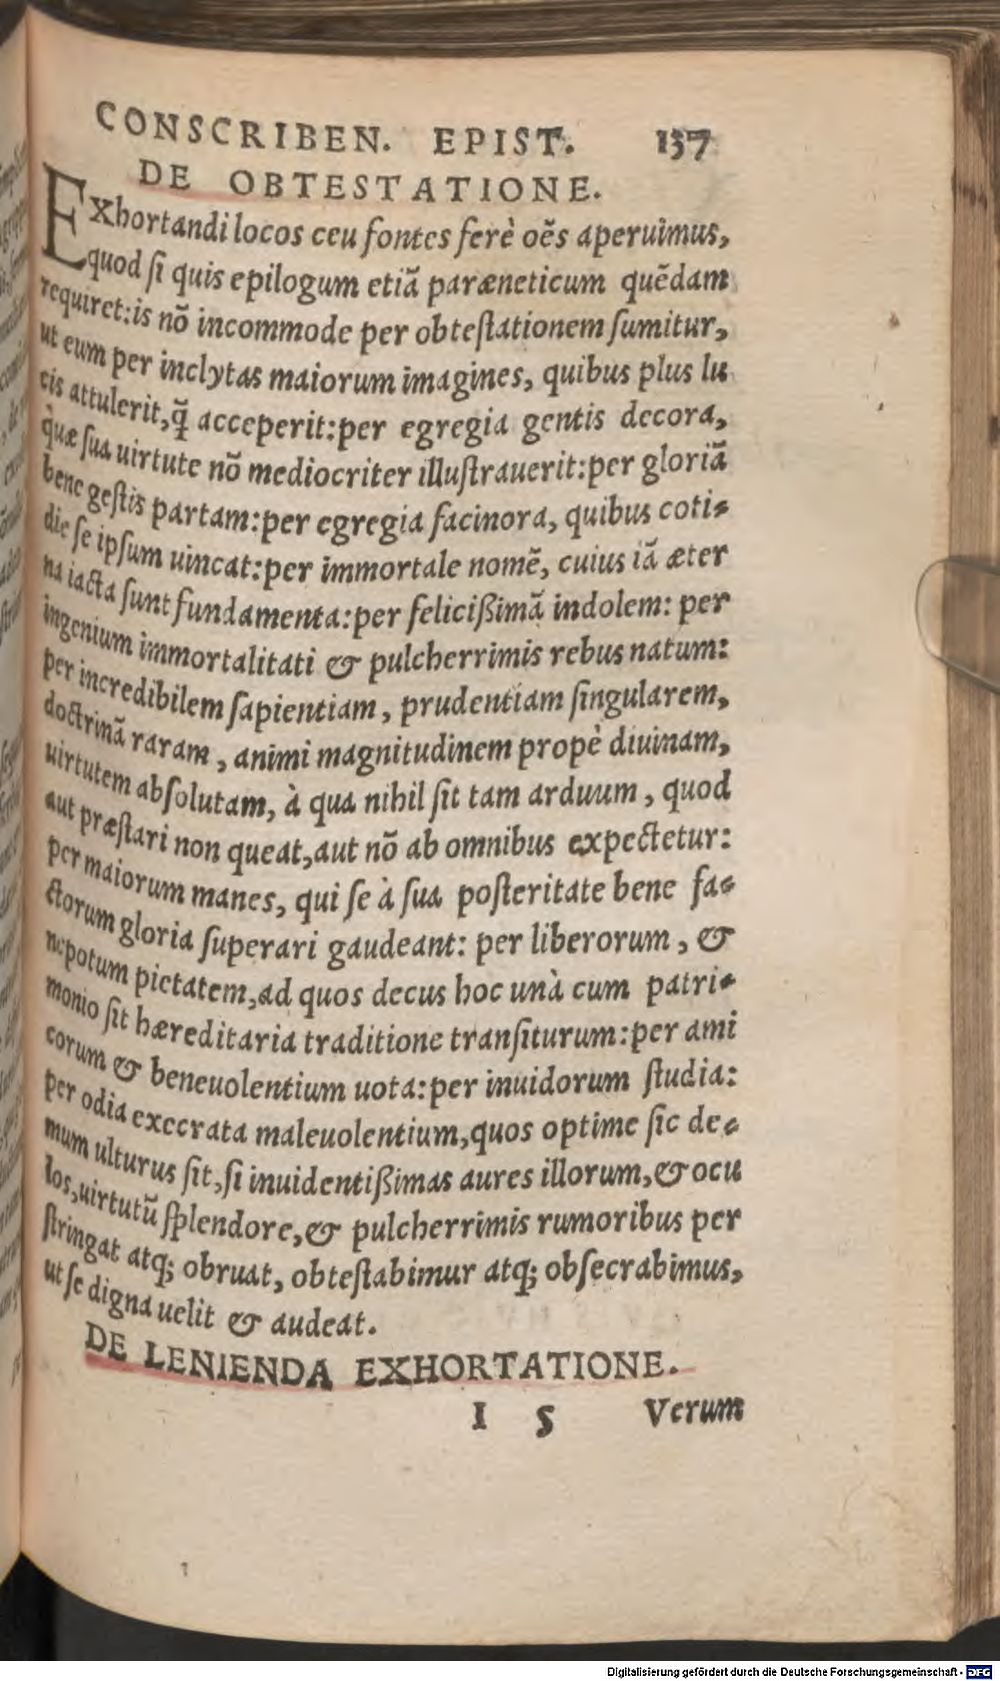 CONSCRIBEN. EPIST. 137
DE OBTESTATIONE.
EXhortandi locos ceu fontes ferè oẽs aperuimus,
quod ſi quis epilogum etiã paræneticum quẽdam
requiret: is nõ incommode per obteſtationem ſumitur,
ut eum per inclytas maiorum imagines, quibus plus lu
cis attulerit, q̃ acceperit: per egregia gentis decora,
quæ ſua uirtute nõ mediocriter illuſtrauerit: per gloriã
bene geſtis partam: per egregia facinora, quibus coti-
die ſe ipſum uincat: per immortale nomẽ, cuius iã æter
na iacta ſunt fundamenta: per feliciſsimã indolem: per
ingenium immortalitati & pulcherrimis rebus natum:
per incredibilem ſapientiam, prudentiam ſingularem,
doctrinã raram, animi magnitudinem propè diuinam,
uirtutem abſolutam, à qua nihil ſit tam arduum, quod
aut præſtari non queat, aut nõ ab omnibus expectetur:
per maiorum manes, qui ſe à ſua poſteritate bene fa-
ctorum gloria ſuperari gaudeant: per liberorum, &
nepotum pietatem, ad quos decus hoc unà cum patri-
monio ſit hæreditaria traditione tranſiturum: per ami
corum & beneuolentium uota: per inuidorum ſtudia:
per odia execrata maleuolentium, quos optime ſic de-
mum ulturus ſit, ſi inuidentiſsimas aures illorum, & ocu
los, uirtutũ ſplendore, & pulcherrimis rumoribus per
ſtringat atq; obruat, obteſtabimur atq; obſecrabimus,
ut ſe digna uelit & audeat.
DE LENIENDA EXHORTATIONE.
I 5 Verum
Digitalisierung gefördert durch die Deutsche Forschungsgemeinschaft - DFG